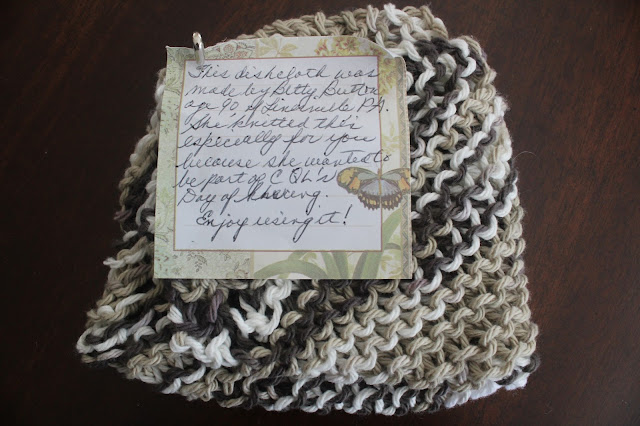 This dishcloth was
made by Betty Button
age 90 of Linesville PA.
She knitted this
especially for you
because she wanted to
be part of C QL's
Day of
Enjoy using it!